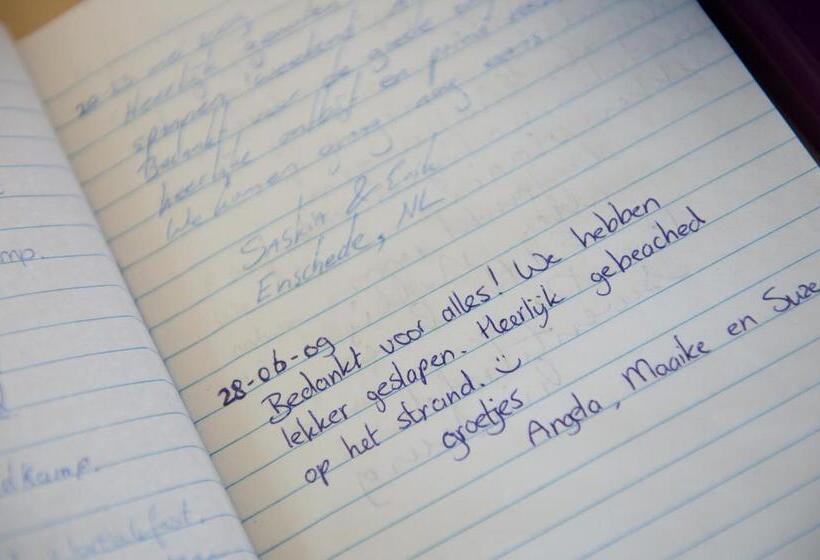 mp.
dkamp.
Heerlijk
spannen weekend
Bedankt voor de goede
heerlijk ontbijt en prima
We komen graag nog eens
Saskia & Erik
Enschede, NL
28-06-09
Bedankt voor alles! We hebben
lekker geslapen. Heerlijk gebeached
op het strand. :)
groetjes
Angela, Maaike en Suze